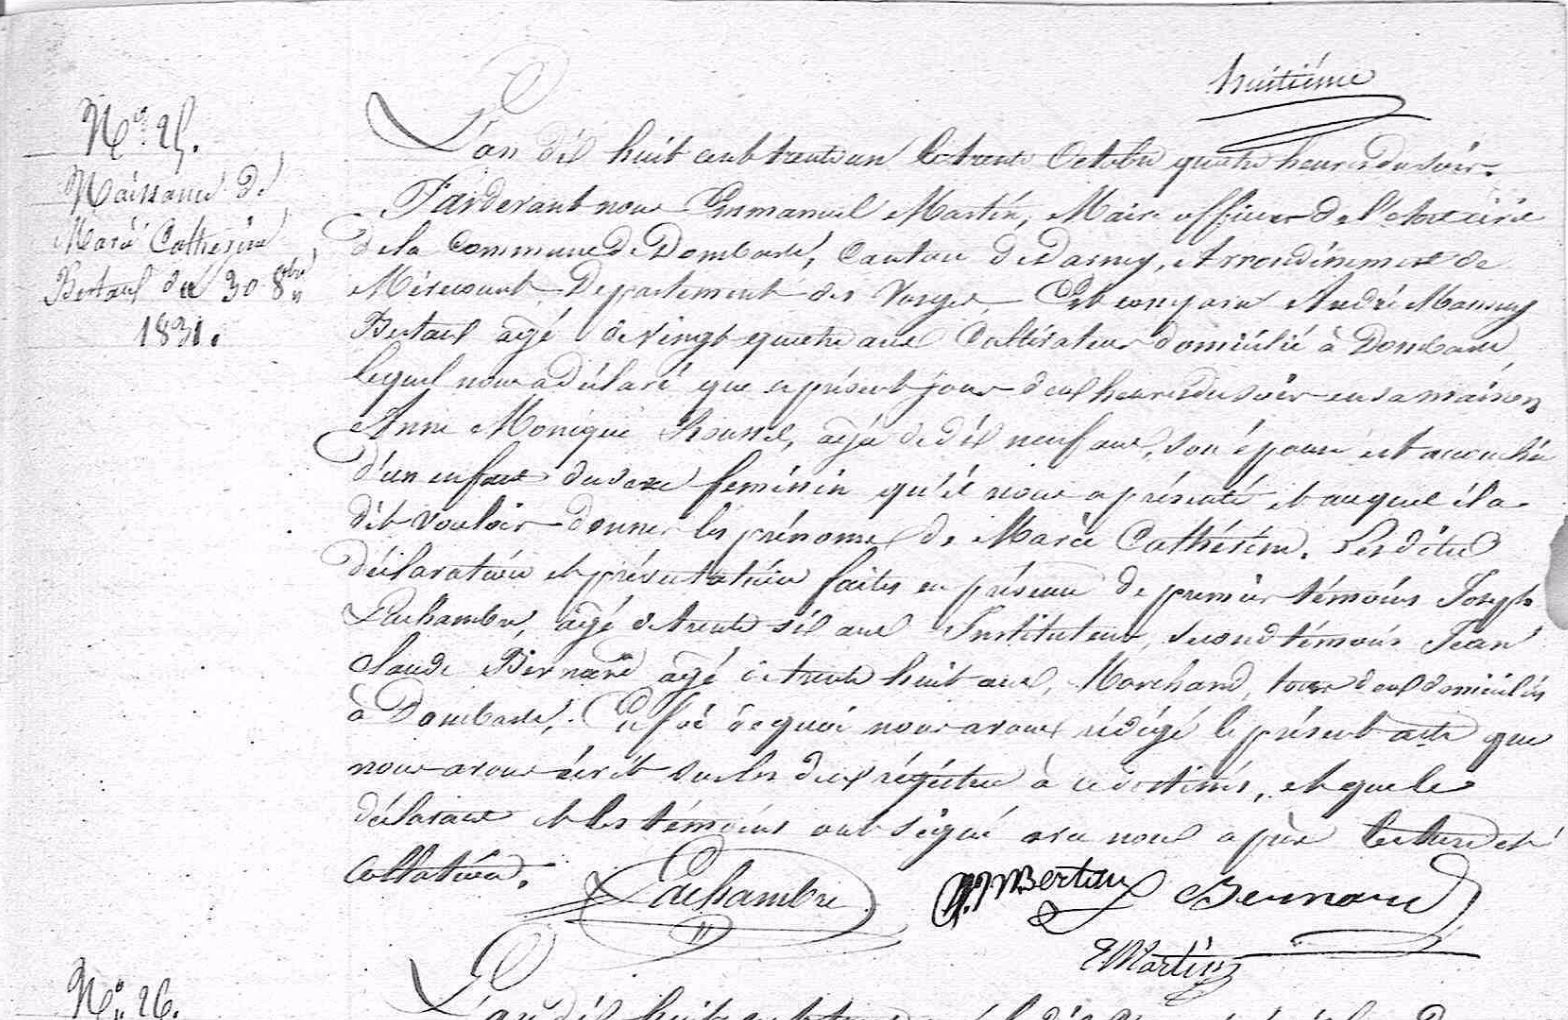 huitième
N° 25.
Naissance de
Marie Catherine
Bertaux du 30 8bre
1831.
L'an dix huit cent trente un le trente Octobre quatre heures du soir.
Pardevant nous Emmanuel Martin, Maire officier de l'état civil
de la commune de Dombasle, Canton de Darney, Arrondissement de
Mirecourt Departement des Vosges Est comparu André
Bertaux agé de vingt quatre ans Cultivateur domicilié à Dombasle,
lequel nous a déclaré que ce présent jour deux heures du soir en sa maison
Anne Monique agée de dix neuf ans, son épouse est accouchée
d'un enfant du sexe feminin qu'il nous a présenté et auquel il a
dit vouloir donner les prénoms de Marie Catherine. Les dites
déclaration et présentation faites en présence de premier témoins Joseph
Lachambre, agé de trente six ans Instituteur, second témoins Jean
Claude Bernard agé de trente huit ans, Marchand, tous deux domiciliés
à Dombasle. En foi de quoi nous avons rédigé le présent acte que
nous avons écrit sur les deux régistres à ce destinés, et que le
déclarant et les témoins ont signé avec nous après lecture et
collation.
Lachambre Bertaux Bernard
EMartin
N° 26.
L'an dix huit cent